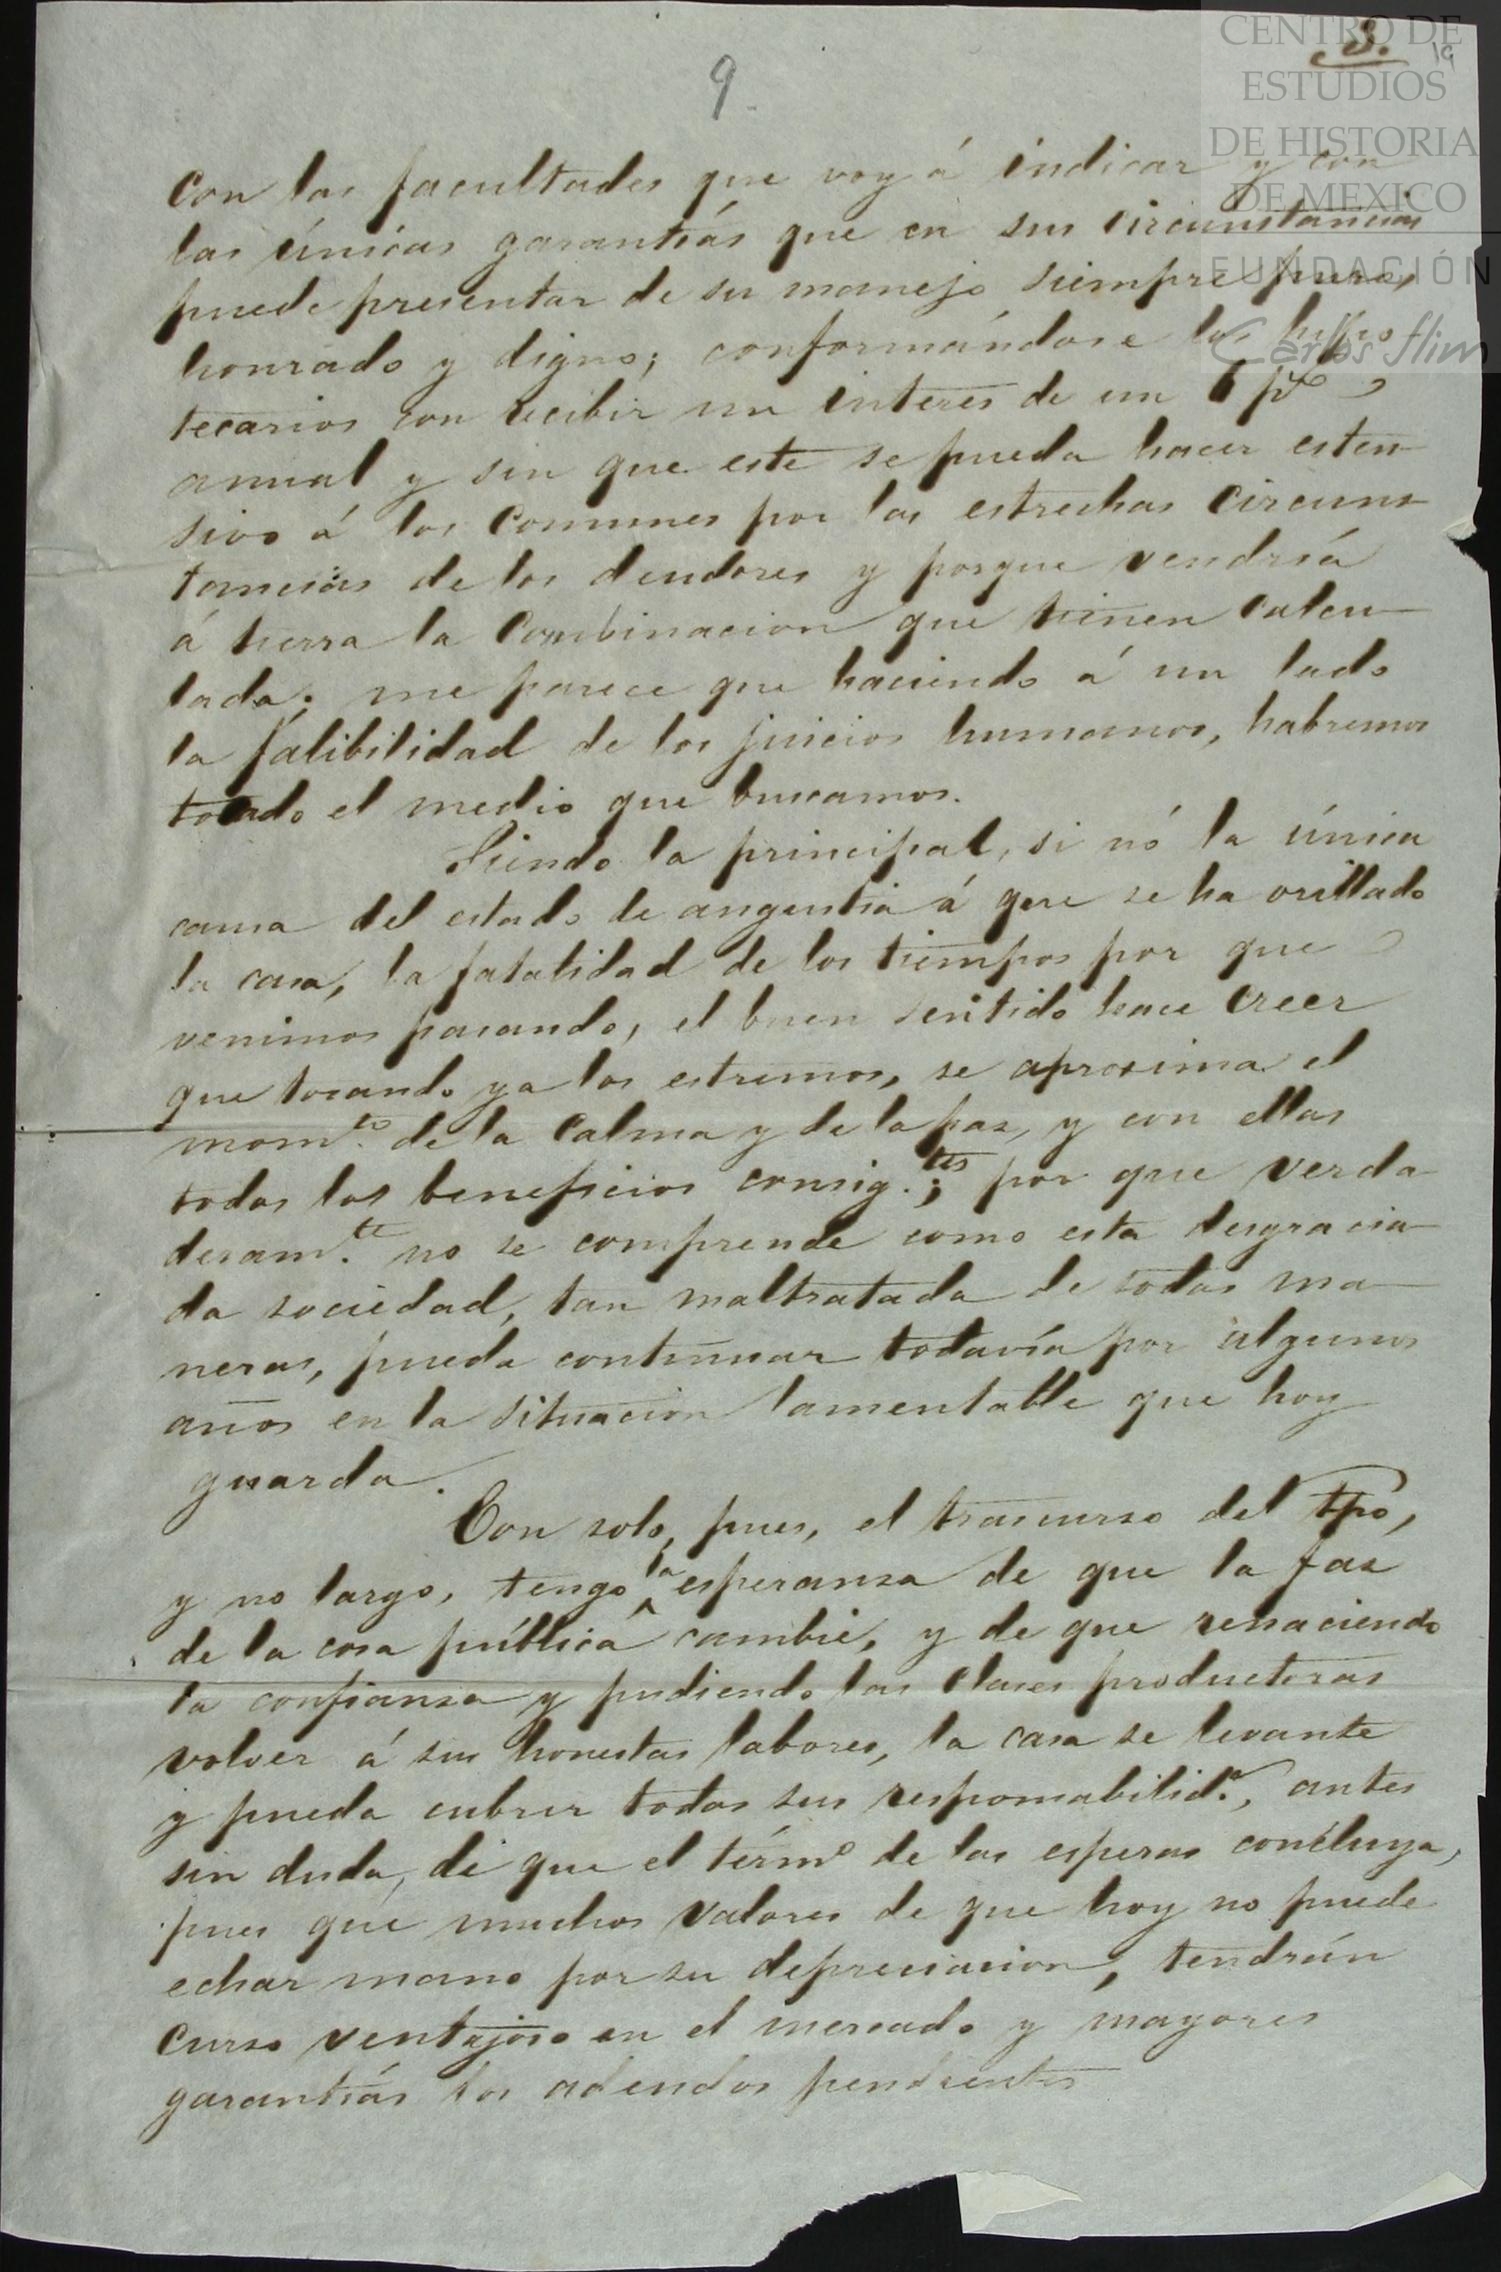 9
8.
19
CENTRO DE
ESTUDIOS
DE HISTORIA
DE MEXICO
FUNDACIÓN
Carlos Slim
Con las facultades que voy á indicar y con
las únicas garantiás que en sus circunstancias
puede presentar de su manejo siempre puro,
honrado y digno; conformándose los hippo
tecarios con recibir un interes de un 6 p%
anual y sin que este se pueda hacer esten-
sivo á los Comunes por las estrechas circuns-
tancias de los deudores y porque vendría
á tierra la Combinacion que tienen calcu-
lada; me parece que haciendo á un lado
la falibilidad de los juicios humanos, habremos
tocado el medio que buscamos.
Siendo la principal, si nó la única
causa del estado de angustia á que se ha orillado
la casa, la fatalidad de los tiempos por que
venimos pasando, el buen sentido hace creer
que tocando ya los estremos, se aprosima el
mom.to de la Calma y de la paz, y con ellas
todos los beneficios consig.tes; por que verda-
deram.te no se comprende como esta desgracia-
da sociedad, tan maltratada de todas ma-
neras, pueda continuar todavía por algunos
años en la situacion lamentable que hoy
guarda.
Con solo, pues, el trascurso del tpo,
y no largo, tengo la esperanza de que la faz
de la cosa pública cambie, y de que renaciendo
la confianza y pudiendo las Clases productoras
volver á sus honestas labores, la casa se levante
y pueda cubrir todas sus responsabilid.s, antes
sin duda, de que el térmº de las esperas concluya,
pues que muchos valores de que hoy no puede
echar mano por su depreciacion, tendrán
curso ventajoso en el mercado y mayores
garantiás los adeudos pendientes